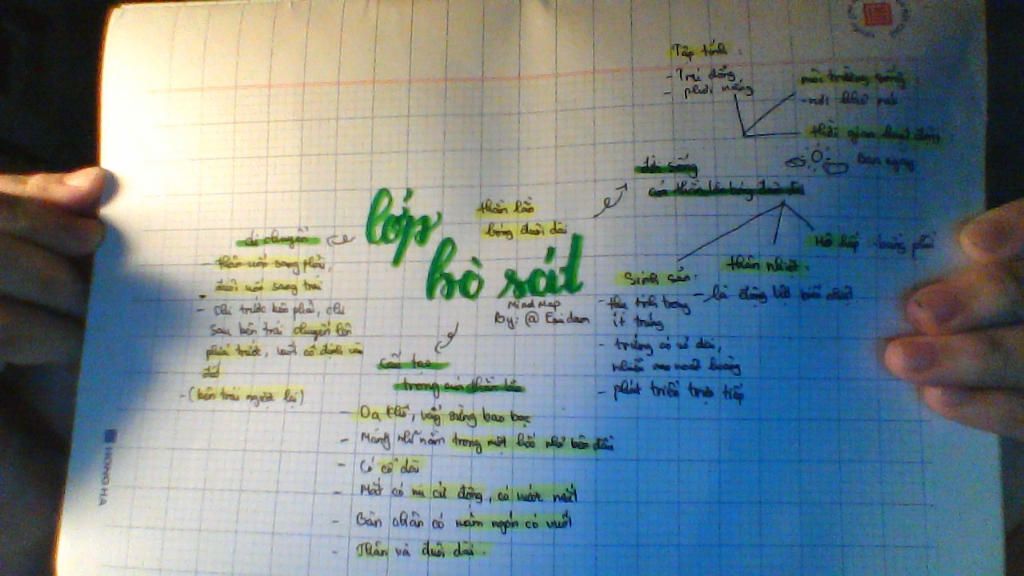 lớp
bò sát
Mind Map
By: @
thằn lằn
bóng đuôi dài
di chuyển
- thân uốn sang phải,
đuôi uốn sang trái
- Chi trước bên phải, chi
sau bên trái chuyển lên
phía trước, cố định
- (bên trái ngược lại)
cấu tạo
trong của thằn lằn
- Da khô, vảy sừng bao bọc
- Màng nhĩ nằm trong một hốc nhỏ bên đầu
- Có cổ dài
- Mắt có mi cử động, có nước mắt
- Bàn chân có năm ngón có vuốt
- Thân và đuôi dài.
đời sống
của thằn lằn bóng đuôi dài
Tập tính:
- Trú đông
- phơi nắng
môi trường sống:
- nơi khô ráo
thời gian hoạt động:
Ban ngày
Sinh sản:
- thụ tinh trong
ít trứng
- trứng có vỏ dai,
nhiều noãn hoàng
- phát triển trực tiếp
thân nhiệt:
- là động vật biến nhiệt
Hô hấp bằng phổi
HONG HA